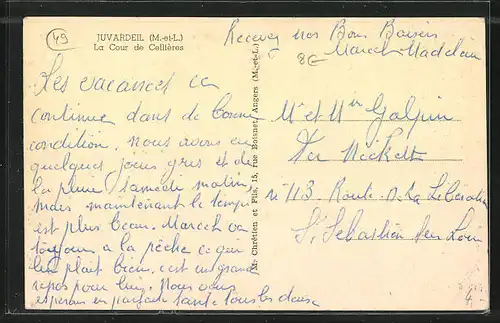 49
JUVARDEIL (M.-et-L.)
La Cour de Cellières
Recevez nos Bons Baisers
Marcel Madeleine
8E
Les vacances ca
continue dans de bonne
condition. nous avons eu
quelques jours gris et de
la pluie samedi matin,
mais maintenant le temps
est plus beau. Marcel va
toujour a la pêche ce qui
lui plait bien, c'est un grand
repos pour lui. Nous vous
esperons en parfaite santé tous les deux
M. Chrétien et Fils, 15, rue Boisnet, Angers (M.-et-L.)
Mr et Mme Galpin
n° 113 Route de La Libération
St Sébastien sur Loire
4-